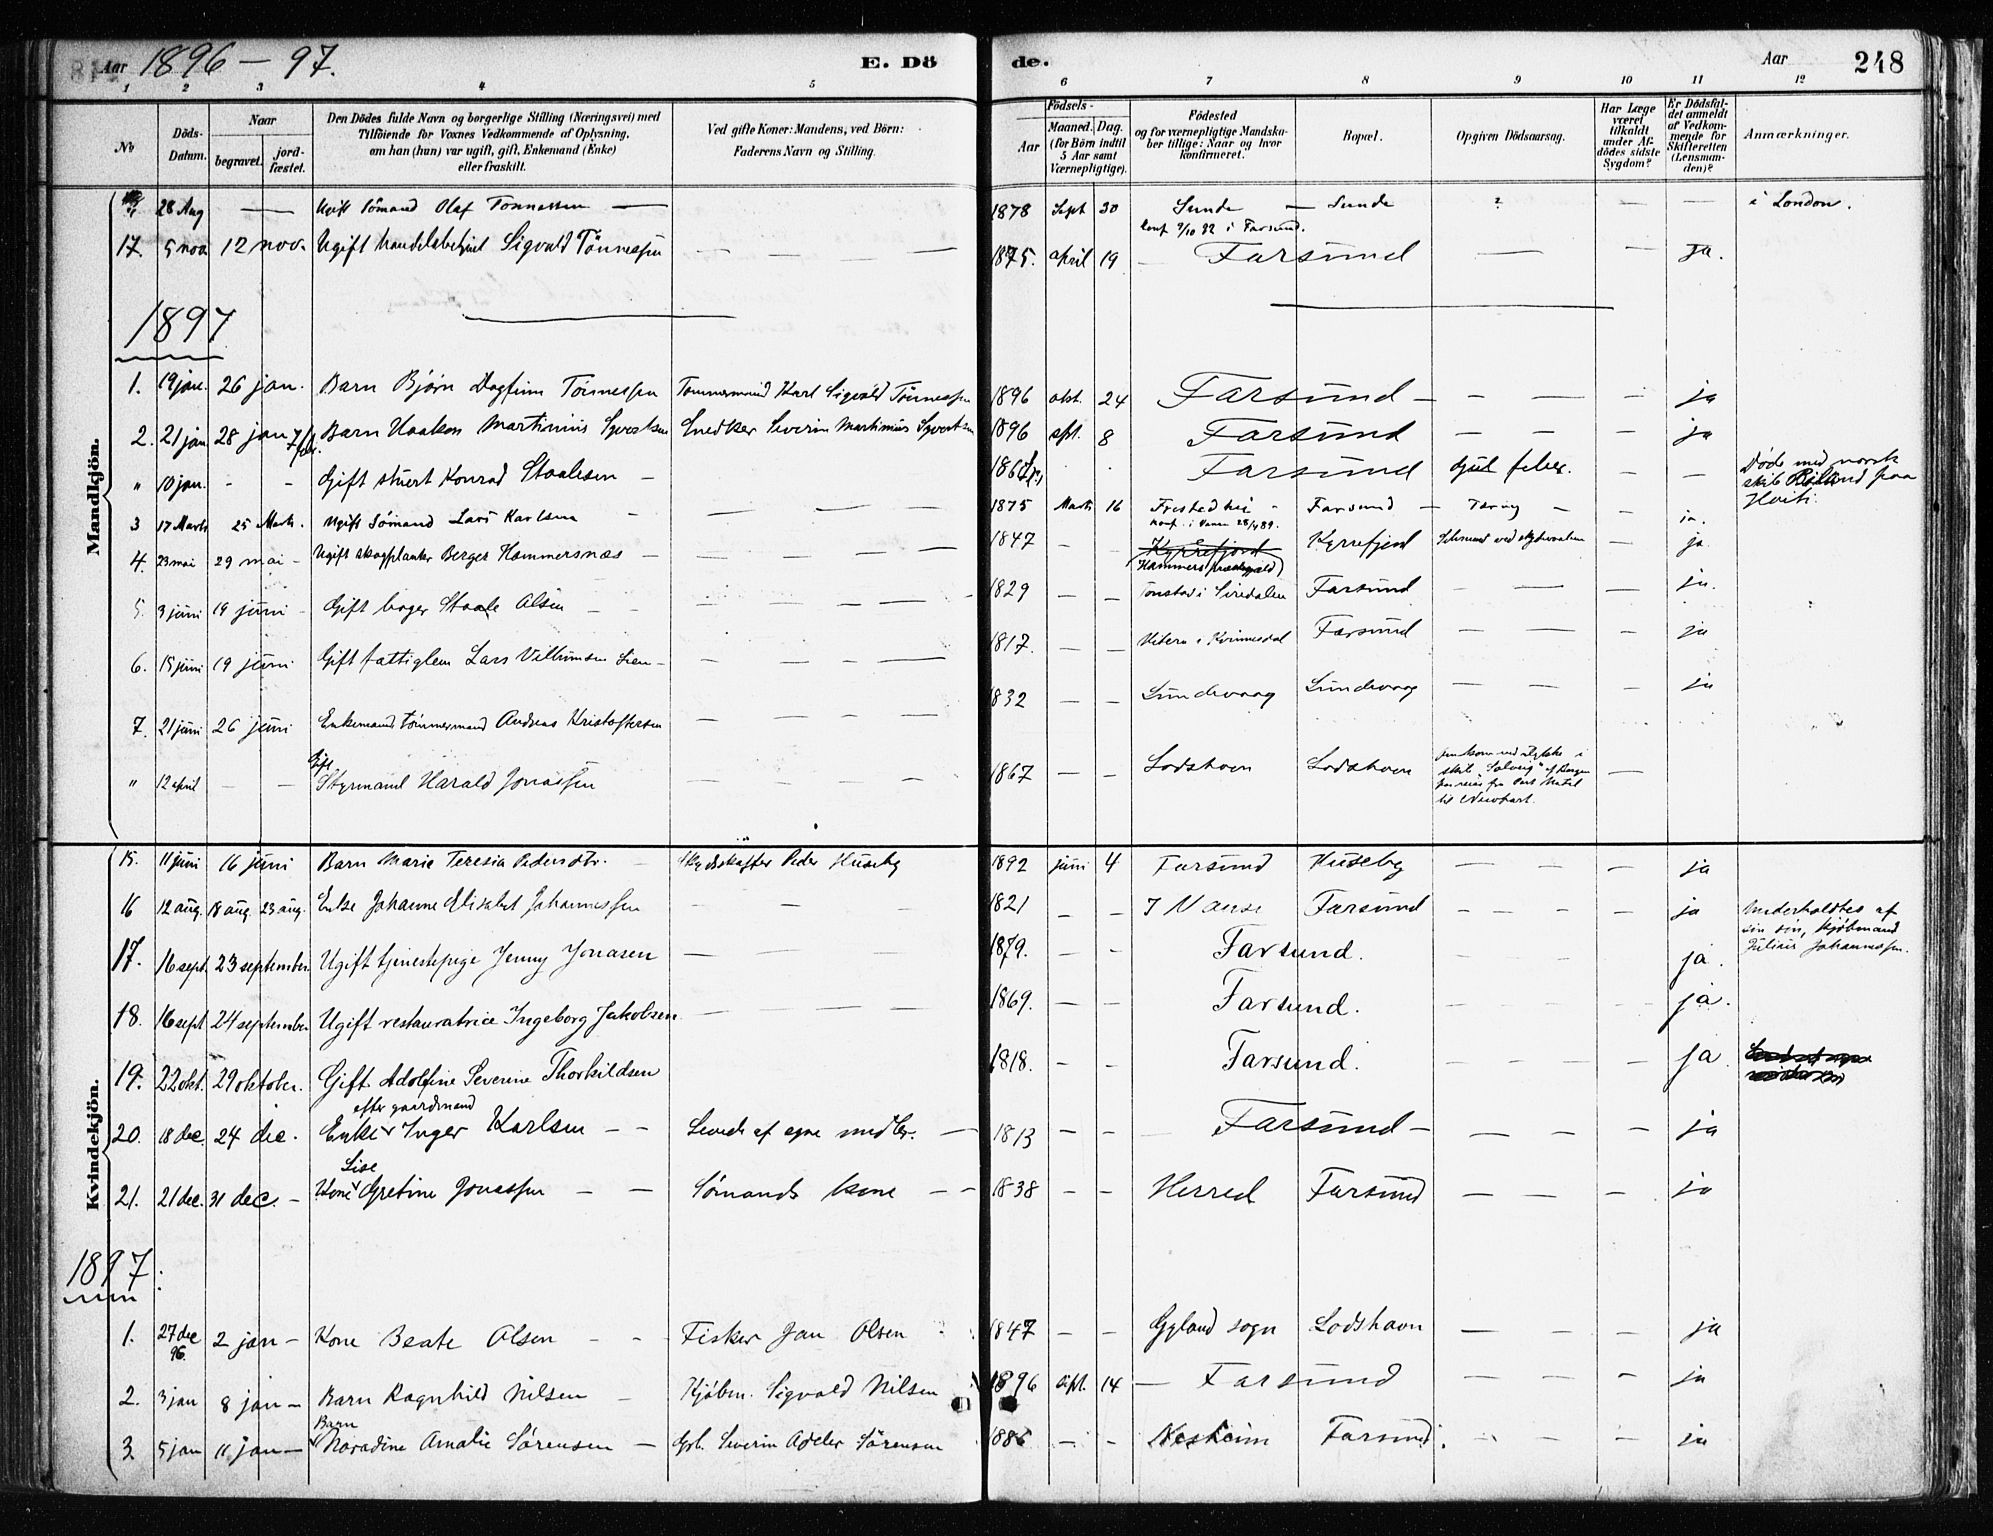 Aar 1896 – 97.
E. Dö de.
Aar
248
1 2 3 4 5 6 7 8 9 10 11 12
No
Döds-Datum.
Naar
begravet.
jordfæstet.
Den Dödes fulde Navn og borgerlige Stilling (Næringsvei) med
Tilföiende for Voxnes Vedkommende af Oplysning,
om han (hun) var ugift, gift, Enkemand (Enke)
eller fraskilt.
Ved gifte Koner: Mandens, ved Börn:
Faderens Navn og Stilling.
Födsels-
Aar
Maaned. Dag.
(for Börn indtil
5 Aar samt
Værnepligtige).
Födested
og for værnepligtige Mandska-
ber tillige: Naar og hvor
konfirmeret.
Bopæl.
Opgiven Dödsaarsag.
Har Læge
været
tilkaldt
under Af-
dödes sidste
Sygdom?
Er Dödsfal-
det anmeldt
af Vedkom-
mende for
Skifteretten
(Lensman-
den)?
Anmærkninger.
Mandkjön.
28 Aug — Ugift Sömand Olaf Tönnessen — 1878 Sept 30 Sunde — Sunde ? — — i London.
konf 2/10 92 i Farsund.
17. 5 nov 12 nov. Ugift handelsbetjent Sigvald Tönnessen — — — — 1875. april 19 — Farsund — — ja.
1897
1. 19 jan. 26 jan. Barn Bjørn Dagfinn Tönnessen Tømmermand Karl Sigvald Tönnessen 1896 okt. 24 Farsund — — — — ja
2. 21 jan 28 jan 7/febr. Barn Haakon Martinius Syvertsen Snedker Severin Martinius Syvertsen 1896 spt. 8 Farsund — — — ja
" 10 jan. - - Gift stuert Konrad Staalesen — Farsund gul feber. — — Döde med norsk
skib fra
Haiti.
3 17 Marts 25 Marts. Ugift Sömand Lars Karlsen — — — — 1875 Marts 16 Farsund — Tæring — — ja.
konf. i Vanse 28/4 89.
4. 23 mai 29 mai — Ugift Berger Hammersnæs — — — — — 1847 — — Kyrrefjord Kyrrefjord — ja
5. 3 juni 19 juni — Gift bager Staale Olsen — — — — — 1829 — — Tonstad i Siredalen Farsund — — — ja.
6. 15 juni 19 juni Gift fattiglem Lars Villumsen — — — — — 1817. — — i Kvinnesdal Farsund — — — ja
7. 21 juni 26 juni Enkemand tömmermand Andreas Kristoffersen — — — — 1832 — — Lundevaag Lundevaag — — — ja
" 12 april — — Gift
Styrmand Harald Jonassen — — — — 1867 — — Lodshavn Lodshavn omkom ved ulykke i
skib "Solveig" af Bergen
paa reise fra Port Natal
til Newport. —
Kvindekjön.
15. 11 juni 16 juni Barn Marie Teresia Pedersdtr. — Peder Huseby 1892 juni 4 Farsund Huseby — — — ja
16 12 aug. 18 aug. 23 aug. Enke Johanne Elisabet Johannessen — — — 1821 — — I Vanse Farsund — — — — ja Underholdtes af
sin søn, kjöbmand
Julius Johannessen.
17. 16 sept. 23 september. Ugift tjenestepige Jenny Jonasen — — — — 1879. — — Farsund. — — — — ja.
18. 16 sept 24 september Ugift restauratrice Ingeborg Jakobsen — — — — 1869. — — Farsund. — — — — ja.
19. 22 okt. 29 oktober. Gift Adolfine Severine Thorkildsen 1818. — — Farsund. — — — — ja.
20. 18 dec. 24 dec. Enke efter gaardmand Inger Karlsen — — Levede af egne midler. — 1813 — — Farsund — — — — — ja
21. 21 dec. 31 dec. — Kone Lise Gretine Jonassen — — Sömands kone — — 1838 — — Herred Farsund — — — — ja
1897.
1. 27 dec 96. 2 jan — Kone Beate Olsen — — Fisker Jan Olsen 1847 — — Gyland sogn Lodshavn — — — — ja
2. 3 jan 8 jan — Barn Ragnhild Nilsen — Kjöbm. Sigvald Nilsen 1896 sept. 14 — Farsund — — — — ja
3. 5 jan 11 jan — Barn Naradine Amalie Sörensen — Gbr. Severin Adler Sörensen 1886 — — Neskeim Farsund. — — — — ja